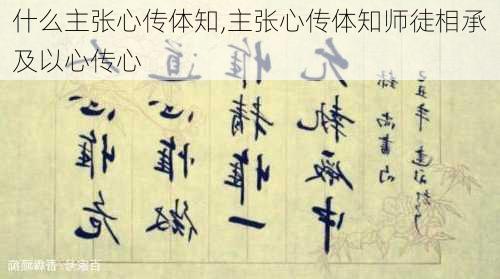 什么主张心传体知,主张心传体知师徒相承
及以心传心
人心惟危
道心惟微
惟精惟一
允執厥中
錄尚書句
己丑年